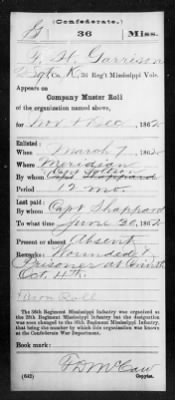 (Confederate.)
G 36 Miss.
F. H. Garrison
Co. K, 36 Reg't Mississippi Vols.
Appears on
Company Muster Roll
of the organization named above,
for Nov & Dec, 1862
Enlisted:
When March 7, 1862
Where Meridian
By whom Capt Sheppard
Period 12 mo.
Last paid:
By whom Capt Sheppard
To what time June 30, 1862
Present or absent Absent
Remarks: Wounded &
Prisoner at Corinth
Oct. 4th.
Roll
The 36th Regiment Mississippi Infantry was organized as
the 36th Regiment Mississippi Infantry but the designation
was changed to the
that being the number by which this organization was known
at the Confederate War Department.
Book mark:
F D McCaw
(642) Copyist.